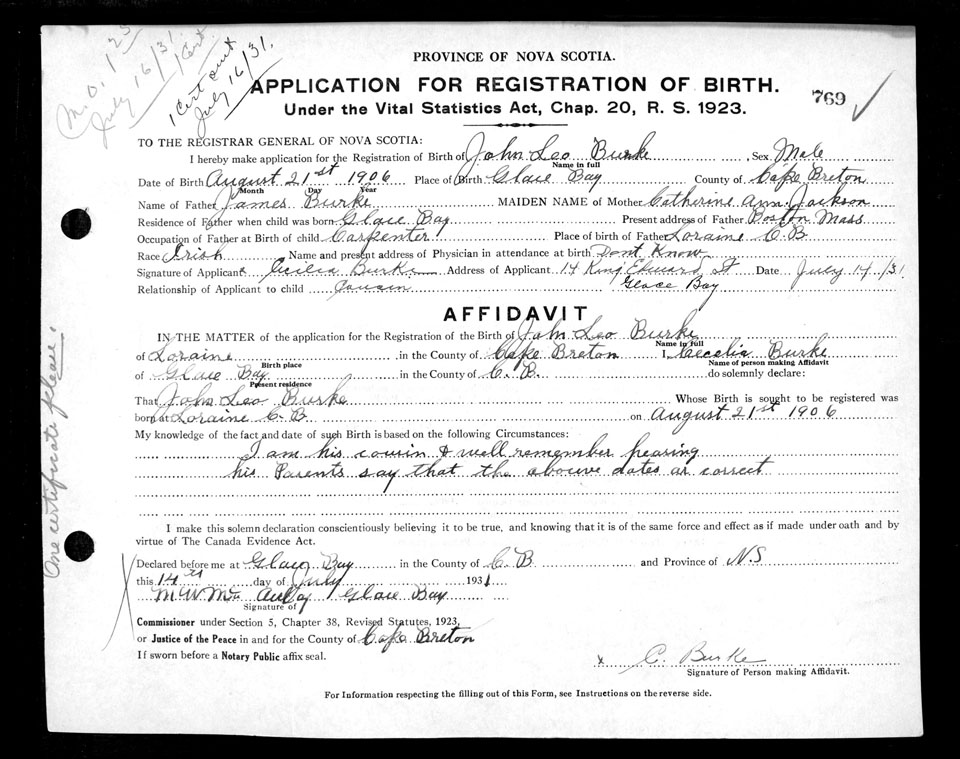 M.O. 1 25
July 16/31.
1 Cert.
1 Cert sent
July 16/31.
PROVINCE OF NOVA SCOTIA.
APPLICATION FOR REGISTRATION OF BIRTH.
Under the Vital Statistics Act, Chap. 20, R. S. 1923.
769
TO THE REGISTRAR GENERAL OF NOVA SCOTIA:
I hereby make application for the Registration of Birth of John Leo Burke, Sex Male
Name in full
Date of Birth August 21st 1906 Place of Birth Glace Bay County of Cape Breton
Month Day Year
Name of Father James Burke MAIDEN NAME of Mother Catherine Ann Jackson
Residence of Father when child was born Glace Bay Present address of Father Boston Mass
Occupation of Father at Birth of child Carpenter Place of birth of Father Loraine C B
Race Irish Name and present address of Physician in attendance at birth Dont Know
Signature of Applicant x Cecilia Burke Address of Applicant 14 King Edward St Date July 14/31
Relationship of Applicant to child Cousin Glace Bay
AFFIDAVIT
IN THE MATTER of the application for the Registration of the Birth of John Leo Burke
Name in full
of Loraine in the County of Cape Breton I, Cecelia Burke
Birth place Name of person making Affidavit
of Glace Bay in the County of C. B. do solemnly declare:
Present residence
That John Leo Burke Whose Birth is sought to be registered was
born at Loraine C. B. on August 21st 1906
My knowledge of the fact and date of such Birth is based on the following Circumstances:
I am his cousin & well remember hearing
his Parents say that the abouve dates ar correct
I make this solemn declaration conscientiously believing it to be true, and knowing that it is of the same force and effect as if made under oath and by
virtue of The Canada Evidence Act.
Declared before me at Glace Bay in the County of C. B. and Province of N.S
this 14th day of July 1931
Glace Bay
Signature of
Commissioner under Section 5, Chapter 38, Revised Statutes, 1923,
or Justice of the Peace in and for the County of Cape Breton
If sworn before a Notary Public affix seal.
x C. Burke
Signature of Person making Affidavit.
For Information respecting the filling out of this Form, see Instructions on the reverse side.
One certificate please.